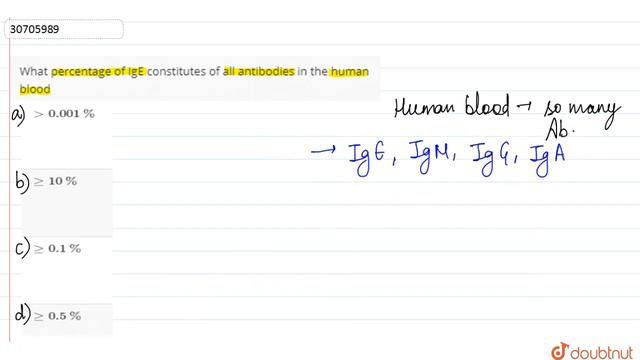 30705989
What percentage of IgE constitutes of all antibodies in the human
blood
a) > 0.001 %
Human blood → so many
Ab.
→ IgE, IgM, IgG, IgA
b) ≥ 10 %
c) ≥ 0.1 %
d) ≥ 0.5 %
doubtnut